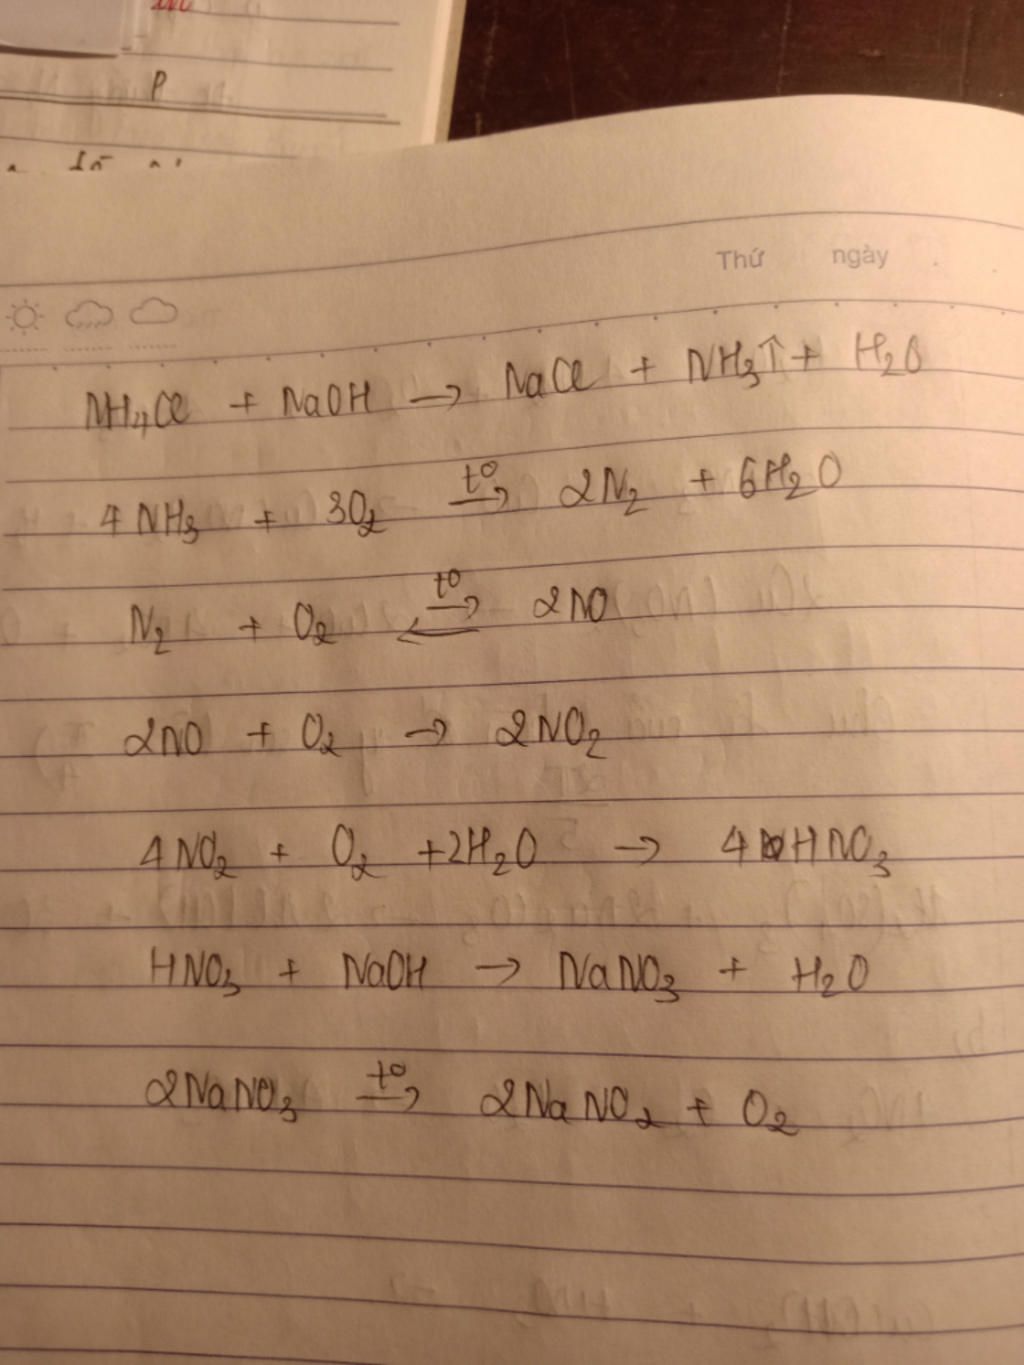 P
Thứ ngày
NH₄Cl + NaOH → NaCl + NH₃↑ + H₂O
4NH₃ + 3O₂ →(t°) 2N₂ + 6H₂O
N₂ + O₂ ⇌(t°) 2NO
2NO + O₂ → 2NO₂
4NO₂ + O₂ + 2H₂O → 4HNO₃
HNO₃ + NaOH → NaNO₃ + H₂O
2NaNO₃ →(t°) 2NaNO₂ + O₂